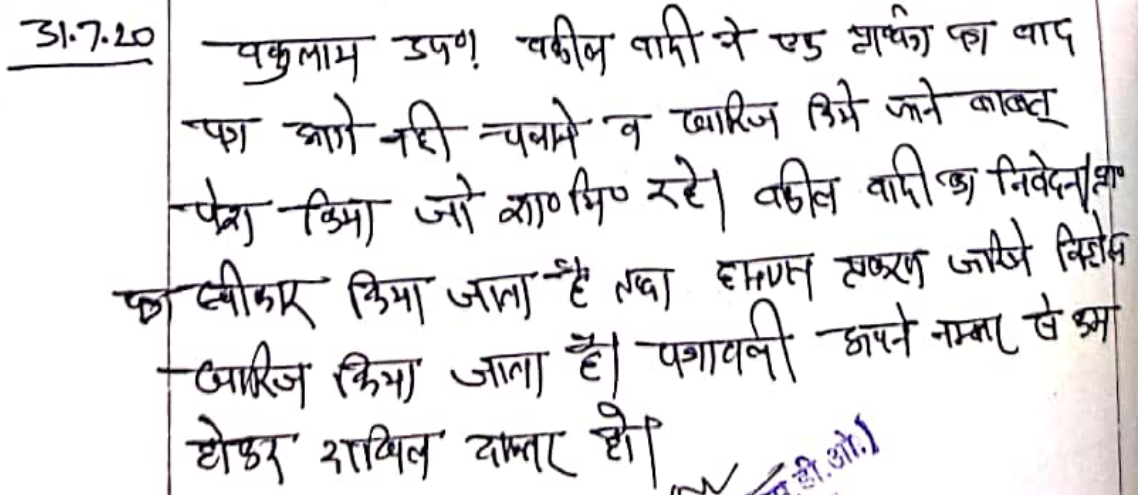 31.7.20
वकुलाय उप०। वकील वादी ने एक प्रार्थना पत्र वाद
पत्र आगे नही चलाने व खारिज किये जाने बाबत्
पेश किया जो शा०मि० रहे। वकील वादी का निवेदन/प्रा०
पत्र स्वीकार किया जाता है तथा हस्तगत प्रकरण जरिये विड्रोल
खारिज किया जाता है। पत्रावली अपने नम्बर से कम
होकर दाखिल दफ्तर हो।
डी.ओ.)